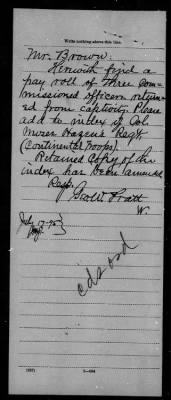 Write nothing above this line.
Mr. Brown:
Herewith find a
pay roll of three Com-
missioned officers return-
ed from captivity. Please
add to index of Col.
Moses Hazen's Regt
(Continental Troops).
Retained copy of the
index has been amended
Resp.
Pratt
W.